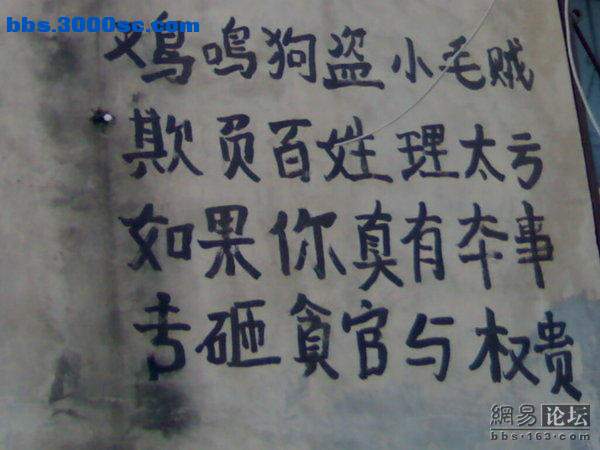 bbs.3000sc.com
鸡鸣狗盗小毛贼
欺负百姓理太亏
如果你真有本事
专砸贪官与权贵
網易论坛
bbs.163.com